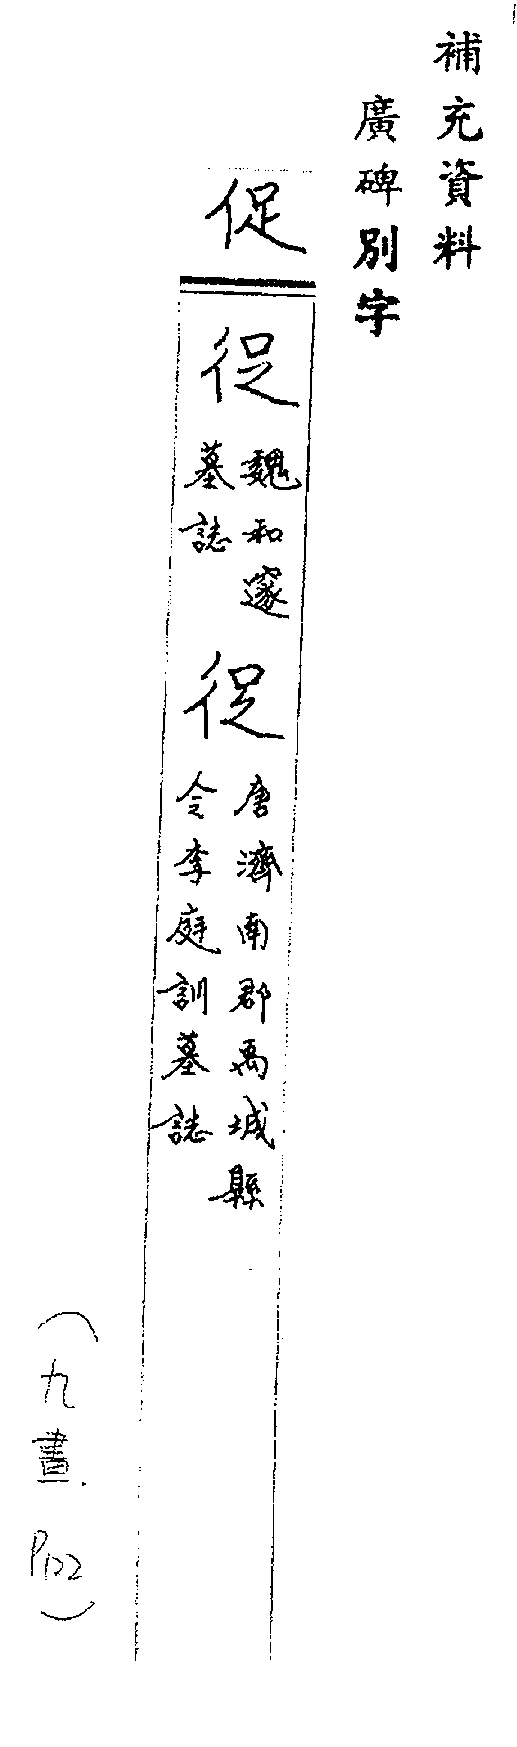 補充資料
廣碑別字
促
㑛
魏和邃
墓誌
㑛
唐濟南郡禹城縣
令李庭訓墓誌
(九畫.P122)